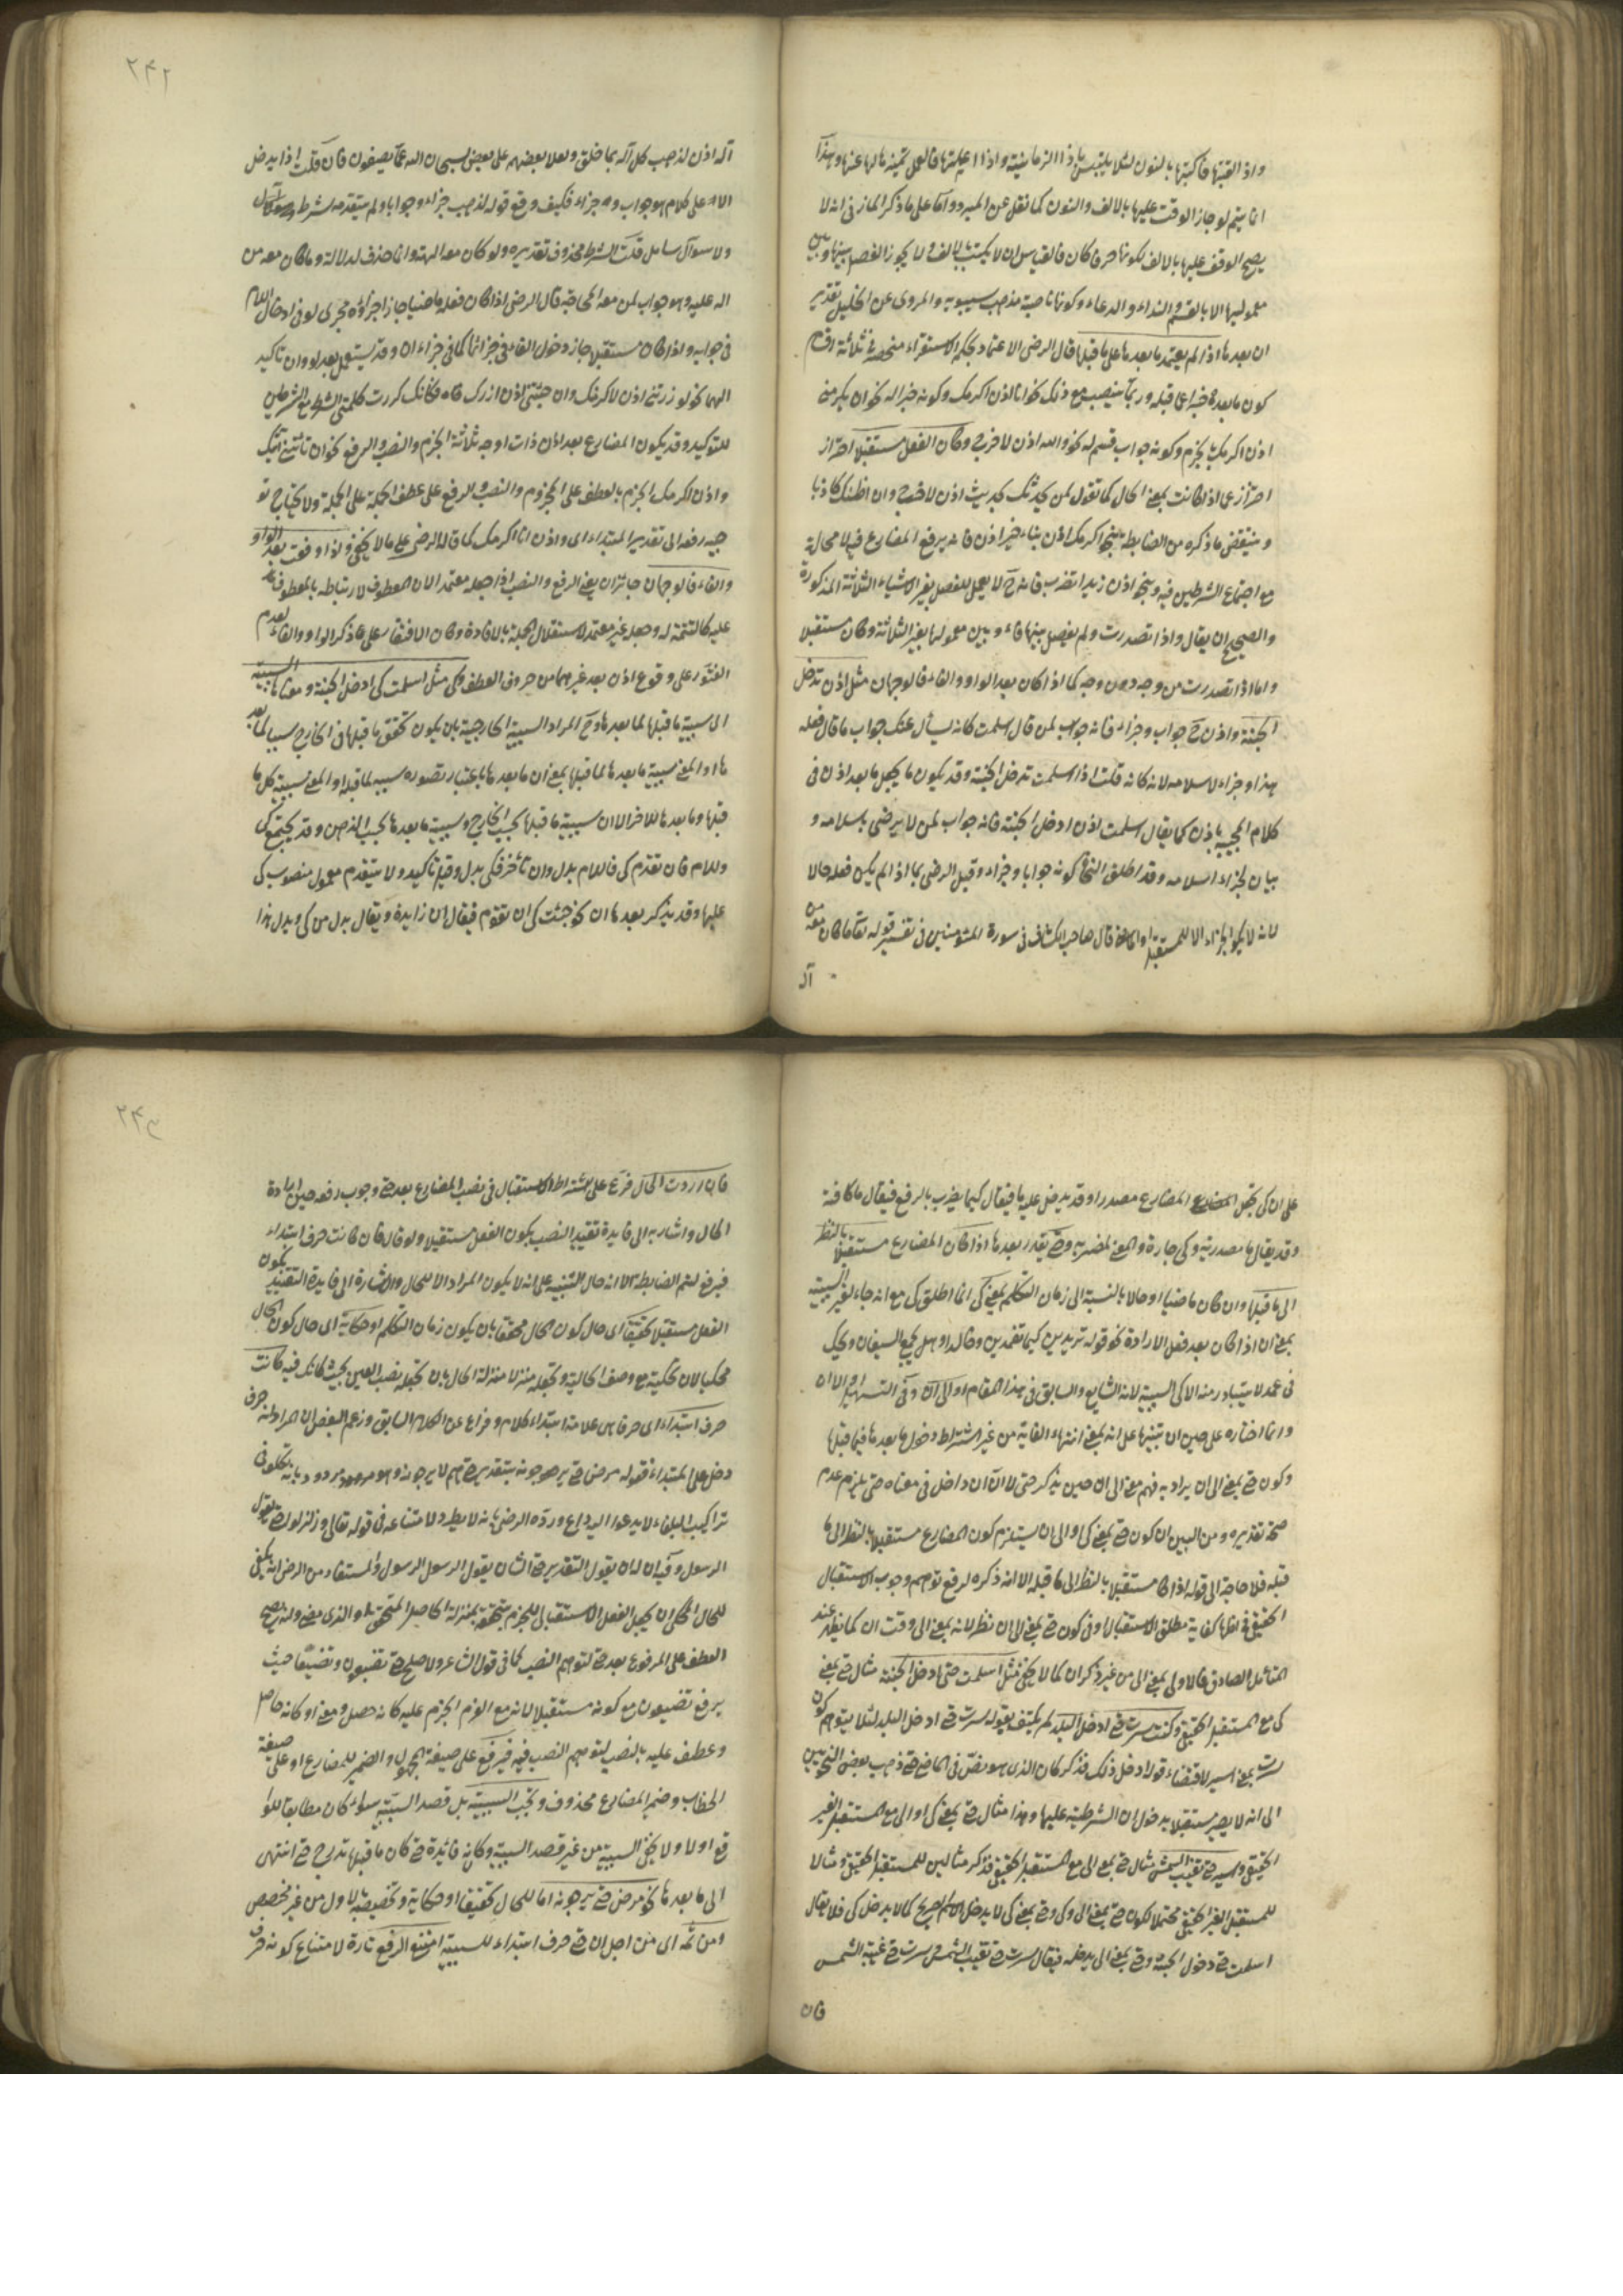 واذ القيتها فاكتبها بالنون لئلا يلتبس باذا الزمانية واذا اعملتها فالعمل تميزه لها عنها وهذا
انما يتم لو جاز الوقف عليها بالالف والنون كما نقل عن المبرد واما على ما ذكر المازنى انه لا
يصح الوقف عليها بالالف لكونها حرفا كان فالقياس ان لا يكتب بالالف ولا يجوز الفصل بينها وبين
معمولها الا بالقسم والنداء والدعاء وكونها ناصبة مذهب سيبويه والمروى عن الخليل تقدير
ان بعدها اذا لم يعتمد ما بعدها على ما قبلها قال الرضى الاعتماد بحكم الاستقراء منحصر فى ثلاثة اقسام
كون ما بعدها خبرا عما قبله وربما ينصب مع ذلك نحو انا اذن اكرمك وكونه جزاء له نحو ان يكرمنى
اذن اكرمك بالجزم وكونه جواب قسم له نحو والله اذن لاخرجن وكان الفعل مستقبلا احتراز
احتراز عما اذا كانت بمعنى الحال كما تقول لمن يحدثك بحديث اذن لافرح وان اظنك كاذبا
وينتقض ما ذكره من الضابطة بنحو اكرمك اذن بناء خبر اذن فانه يرفع المضارع فيه لا محالة
مع اجتماع الشرطين فيه وبنحو اذن زيدا تضرب فانه ح لا يعمل للفصل بغير الاشياء الثلاثة المذكورة
والصحيح ان يقال واذا تصدرت ولم يفصل بينها وبين معمولها بغير الثلاثة وكان مستقبلا
واما اذا تصدرت من وجه دون وجه كما اذا كان بعد الواو والفاء فالوجهان مثل اذن تدخل
الجنة واذن ح جواب وجزاء فانه جواب لمن قال اسلمت كانه يسأل عنك جواب ما قال فعله
هذا وجزاء لاسلامه لانه كانه قلت اذا اسلمت تدخل الجنة وقد يكون ما يجعل ما بعد اذن فى
كلام المجيب باذن كما يقال اسلمت اذن ادخل الجنة فانه جواب لمن لا يرضى باسلامه و
بيان لجزاء اسلامه وقد اطلق النحاة كونه جوابا وجزاء وقيل الرضى بما اذا لم يكن فعله حالا
لانه لا يكون الجزاء الا للمستقبل او الماضى قال صاحب الكشاف فى سورة المؤمنين فى تفسير قوله تعالى ما كان معه من
آلـ
٢٤٢
آله اذن لذهب كل اله بما خلق ولعلا بعضهم على بعض سبحان الله عما يصفون فان قلت اذا يدخل
الا على كلام هو جواب وجزاء فكيف وقع قوله لذهب جزاء وجوابا ولم يتقدمه شرط
ولا سؤال سائل قلت الشرط محذوف تقديره ولو كان معه الهة وانما حذف لدلالة وما كان معه من
اله عليه وهو جواب لمن معه المحاجة قال الرضى اذا كان فعله ماضيا جاز اجراؤه مجرى لو فى ادخال اللام
فى جوابه واذا كان مستقبلا جاز دخول الفاء فى جزائها كما فى جزاء ان وقد يستعمل بعد لو وان تاكيد
الهما نحو لو زرتنى اذن لاكرمتك وان جئتنى اذن ازرك فكانك كررت كلمتى الشرط مع الشرطين
للتوكيد وقد يكون المضارع بعد اذن ذات اوجه ثلاثة الجزم والنصب والرفع نحو ان تاتنى آتك
واذن اكرمك الجزم بالعطف على المجزوم والنصب والرفع على عطف الجملة على الجملة ولا يحتاج تو
جيه رفعه الى تقدير المبتداء اى واذن انا اكرمك كما قاله الرضى على ما لا يخفى واذا وقعت بعد الواو
والفاء فالوجهان جائزان يعنى الرفع والنصب اذا جعله معتمدا لان المعطوف لارتباطه بالمعطوف
عليه كالتتمة له وجعله غير معتمد لاستقلال الجملة بالافادة وكان الاقتصار على ذكر الواو والفاء لعدم
العثور على وقوع اذن بعد غيرهما من حروف العطف وكى مثل اسلمت كى ادخل الجنة ومعناها السببية
اى سببية ما قبلها لما بعدها و ح المراد السببية الخارجية بان يكون تحقق ما قبلها فى الخارج سببا لما بعد
ها او المعنى سببية ما بعدها لما قبلها بمعنى ان ما بعدها باعتبار تصوره سبب لما قبله او المعنى سببية كل ما
قبلها وما بعدها للاخر الا ان سببية ما قبلها بحسب الخارج وسببية ما بعدها بحسب الذهن وقد يجتمع كى
واللام فان تقدم كى فاللام بدل وان تاخر فكى بدل وقيل تاكيد ولا يتقدم معمول منصوب كى
عليها وقد يذكر بعدها ان نحو جئت كى ان تقوم فيقال ان زايدة ويقال بدل من كى وبدل هذا
على ان كى تجعل المضارع مصدرا وقد يدخل عليه ما فيقال كيما يضرب بالرفع فيقال ما كافة
وقد يقال ما مصدرية وكى جارة والمعنى لمضربه وحتى يقدر بعدها اذا كان المضارع مستقبلا بالنظر
الى ما قبلها وان كان ماضيا او حالا بالنسبة الى زمان التكلم بمعنى كى انما اطلق كى مع انه جاء لغير السببية
بمعنى ان اذا كان بعد فعل الارادة نحو قوله تريدين كيما تجمعين وخالدا وهل يجمع السيفان ويحك
فى غمد لا يتبادر منه الا كى السببية لانه الشايع والسابق فى هذا المقام او الى ان وفى التسهيل او الا ان
وانما اختاره على حين ان تنبيها على انه بمعنى انتهاء الغاية من غير اشتراط دخول ما بعدها فيما قبلها
وكون حتى بمعنى الى ان يراد به فهم معنى الى ان حين يذكر حتى لا ان ان داخل فى معناه حتى يلزم عدم
صحة تقديره ومن البين ان كون حتى بمعنى كى او الى ان يستلزم كون المضارع مستقبلا بالنظر الى ما
قبله فلا حاجة الى قوله اذا كان مستقبلا بالنظر الى ما قبله الا انه ذكره لرفع توهم وجوب الاستقبال
الحقيقى فى اعمالها كفاية مطلق الاستقبال وفى كون حتى بمعنى الى ان نظر لانه بمعنى الى وقت ان كما يظهر عند
التأمل الصادق فالاولى بمعنى الى من غير ذكر ان كما لا يخفى مثل اسلمت حتى ادخل الجنة مثال حتى بمعنى
كى مع المستقبل الحقيقى وكنت سرت حتى ادخل البلد لم يكتف بقوله سرت حتى ادخل البلد لئلا يتوهم كون
سرت بمعنى اسير لاقتضاء قوله ادخل ذلك فذكر كان الذى هو نص فى الماضى حتى ذهب بعض النحويين
الى انه لا يصير مستقبلا بدخول ان الشرطية عليها وهذا مثال حتى بمعنى كى او الى مع المستقبل الغير
الحقيقى واسير حتى تغيب الشمس مثال حتى بمعنى الى مع المستقبل الحقيقى فذكر مثالين للمستقبل الحقيقى ومثالا
للمستقبل الغير الحقيقى محتملا لكون حتى بمعنى الى وكى وحتى بمعنى كى لا يدخل الاسم الصريح كما لا يدخل كى فلا يقال
اسلمت حتى دخول الجنة وحتى بمعنى الى يدخله فيقال سرت حتى تغيب الشمس وسرت حتى غيبة الشمس
فان
٢٤٣
فان اردت الحال فرع على اشتراط الاستقبال فى نصب المضارع بعد حتى وجوب رفعه حين ارادة
الحال واشار به الى فايدة تقييد النصب بكون الفعل مستقبلا ولو قال فان كانت حرف ابتداء
فيرفع لتم الضابطة الا انه حاول التنبيه على انه لا يكون المراد الا للحال والاشارة الى فايدة التقييد بكون
الفعل مستقبلا تحقيقا اى حال كون الحال محققا بان يكون زمان التكلم او حكاية اى حال كون الحال
محكيا لان تحكيه مع وصف الحالية وتجعله منزلا منزلة الحال بان تجعله نصب العين بحيث كانك فيه كانت
حرف ابتداء اى حرفا هى علامة ابتداء كلام وفراغ عن الكلام السابق وزعم البعض ان المراد انه حرف
دخل على المبتداء فقوله مرض حتى يرجونه بتقدير حتى هم لا يرجونه وهو مردود بانه تكلف فى
تراكيب البلغاء لا يدعو اليه داع ورده الرضى بانه لا يطرد لامتناعه فى قوله تعالى وزلزلوا حتى يقول
الرسول وفيه ان له ان يقول التقدير حتى الشان يقول الرسول الرسول والمستفاد من الرضى انه يكفى
للحال المحكى ان يجعل الفعل الاستقبالى للجزم بتحققه بمنزلة الحاصل المتحقق والذى مضى وانه يصح
العطف على المرفوع بعد حتى لتوهم النصب كما فى قول الشاعر ولا صلح حتى تضبعون ونضبعا حيث
يرفع تضبعون مع كونه مستقبلا لانه مع العزم الجزم عليه كانه حصل ومضى او كانه حاصل
وعطف عليه بالنصب لتوهم النصب فيه فيرفع على صيغة المجهول والضمير للمضارع او على صيغة
الخطاب وضمير المضارع محذوف وتجب السببية بل قصد السببية سواء كان مطابقا للوا
قع اولا ولا يكفى السببية من غير قصد السببية وكانه فائدة حتى كان ما قبلها تدرج حتى انتهى
الى ما بعدها نحو مرض حتى يرجونه اما للحال تحقيقا او حكاية وتخصيصه بالاول من غير مخصص
ومن ثمه اى من اجل ان حتى حرف ابتداء للسببية امتنع الرفع تارة لامتناع كونه حرف